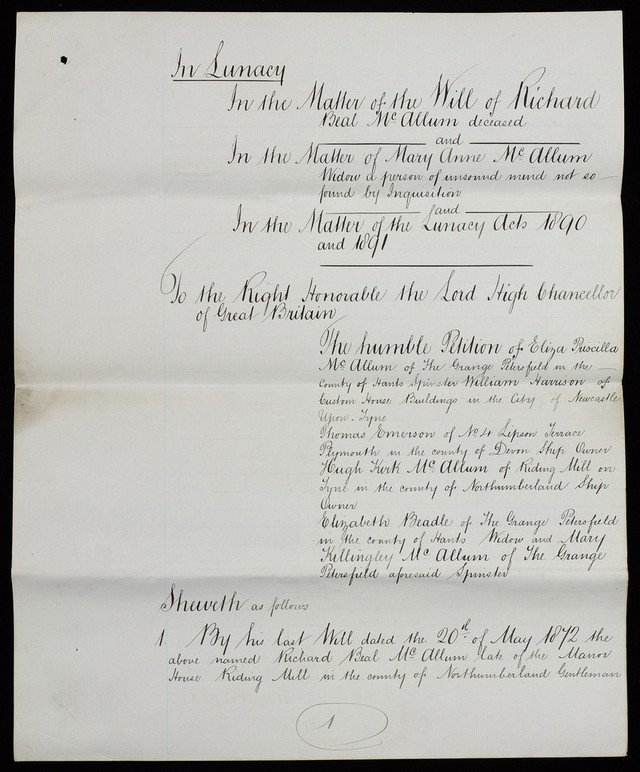 In Lunacy
In the Matter of the Will of Richard
Beal Mc Allum deceased
and
In the Matter of Mary Anne Mc Allum
Widow a person of unsound mind not so
found by Inquisition
and
In the Matter of the Lunacy Acts 1890
and 1891
To the Right Honorable the Lord High Chancellor
of Great Britain
The humble Petition of Eliza Priscilla
Mc Allum of The Grange Petersfield in the
County of Hants Spinster William Harrison of
Custom House Buildings in the City of Newcastle
Upon-Tyne
Thomas Emerson of No 4 Lipson Terrace
Plymouth in the county of Devon Ship Owner
Hugh Kerk Mc Allum of Riding Mill on
Tyne in the county of Northumberland Ship
Owner
Elizabeth Beadle of The Grange Petersfield
in the county of Hants Widow and Mary
Killingley Mc Allum of The Grange
Petersfield aforesaid Spinster
Sheweth as follows
1 By his last Will dated the 20th of May 1872 the
above named Richard Beal Mc Allum late of the Manor
House Riding Mill in the county of Northumberland Gentleman
1